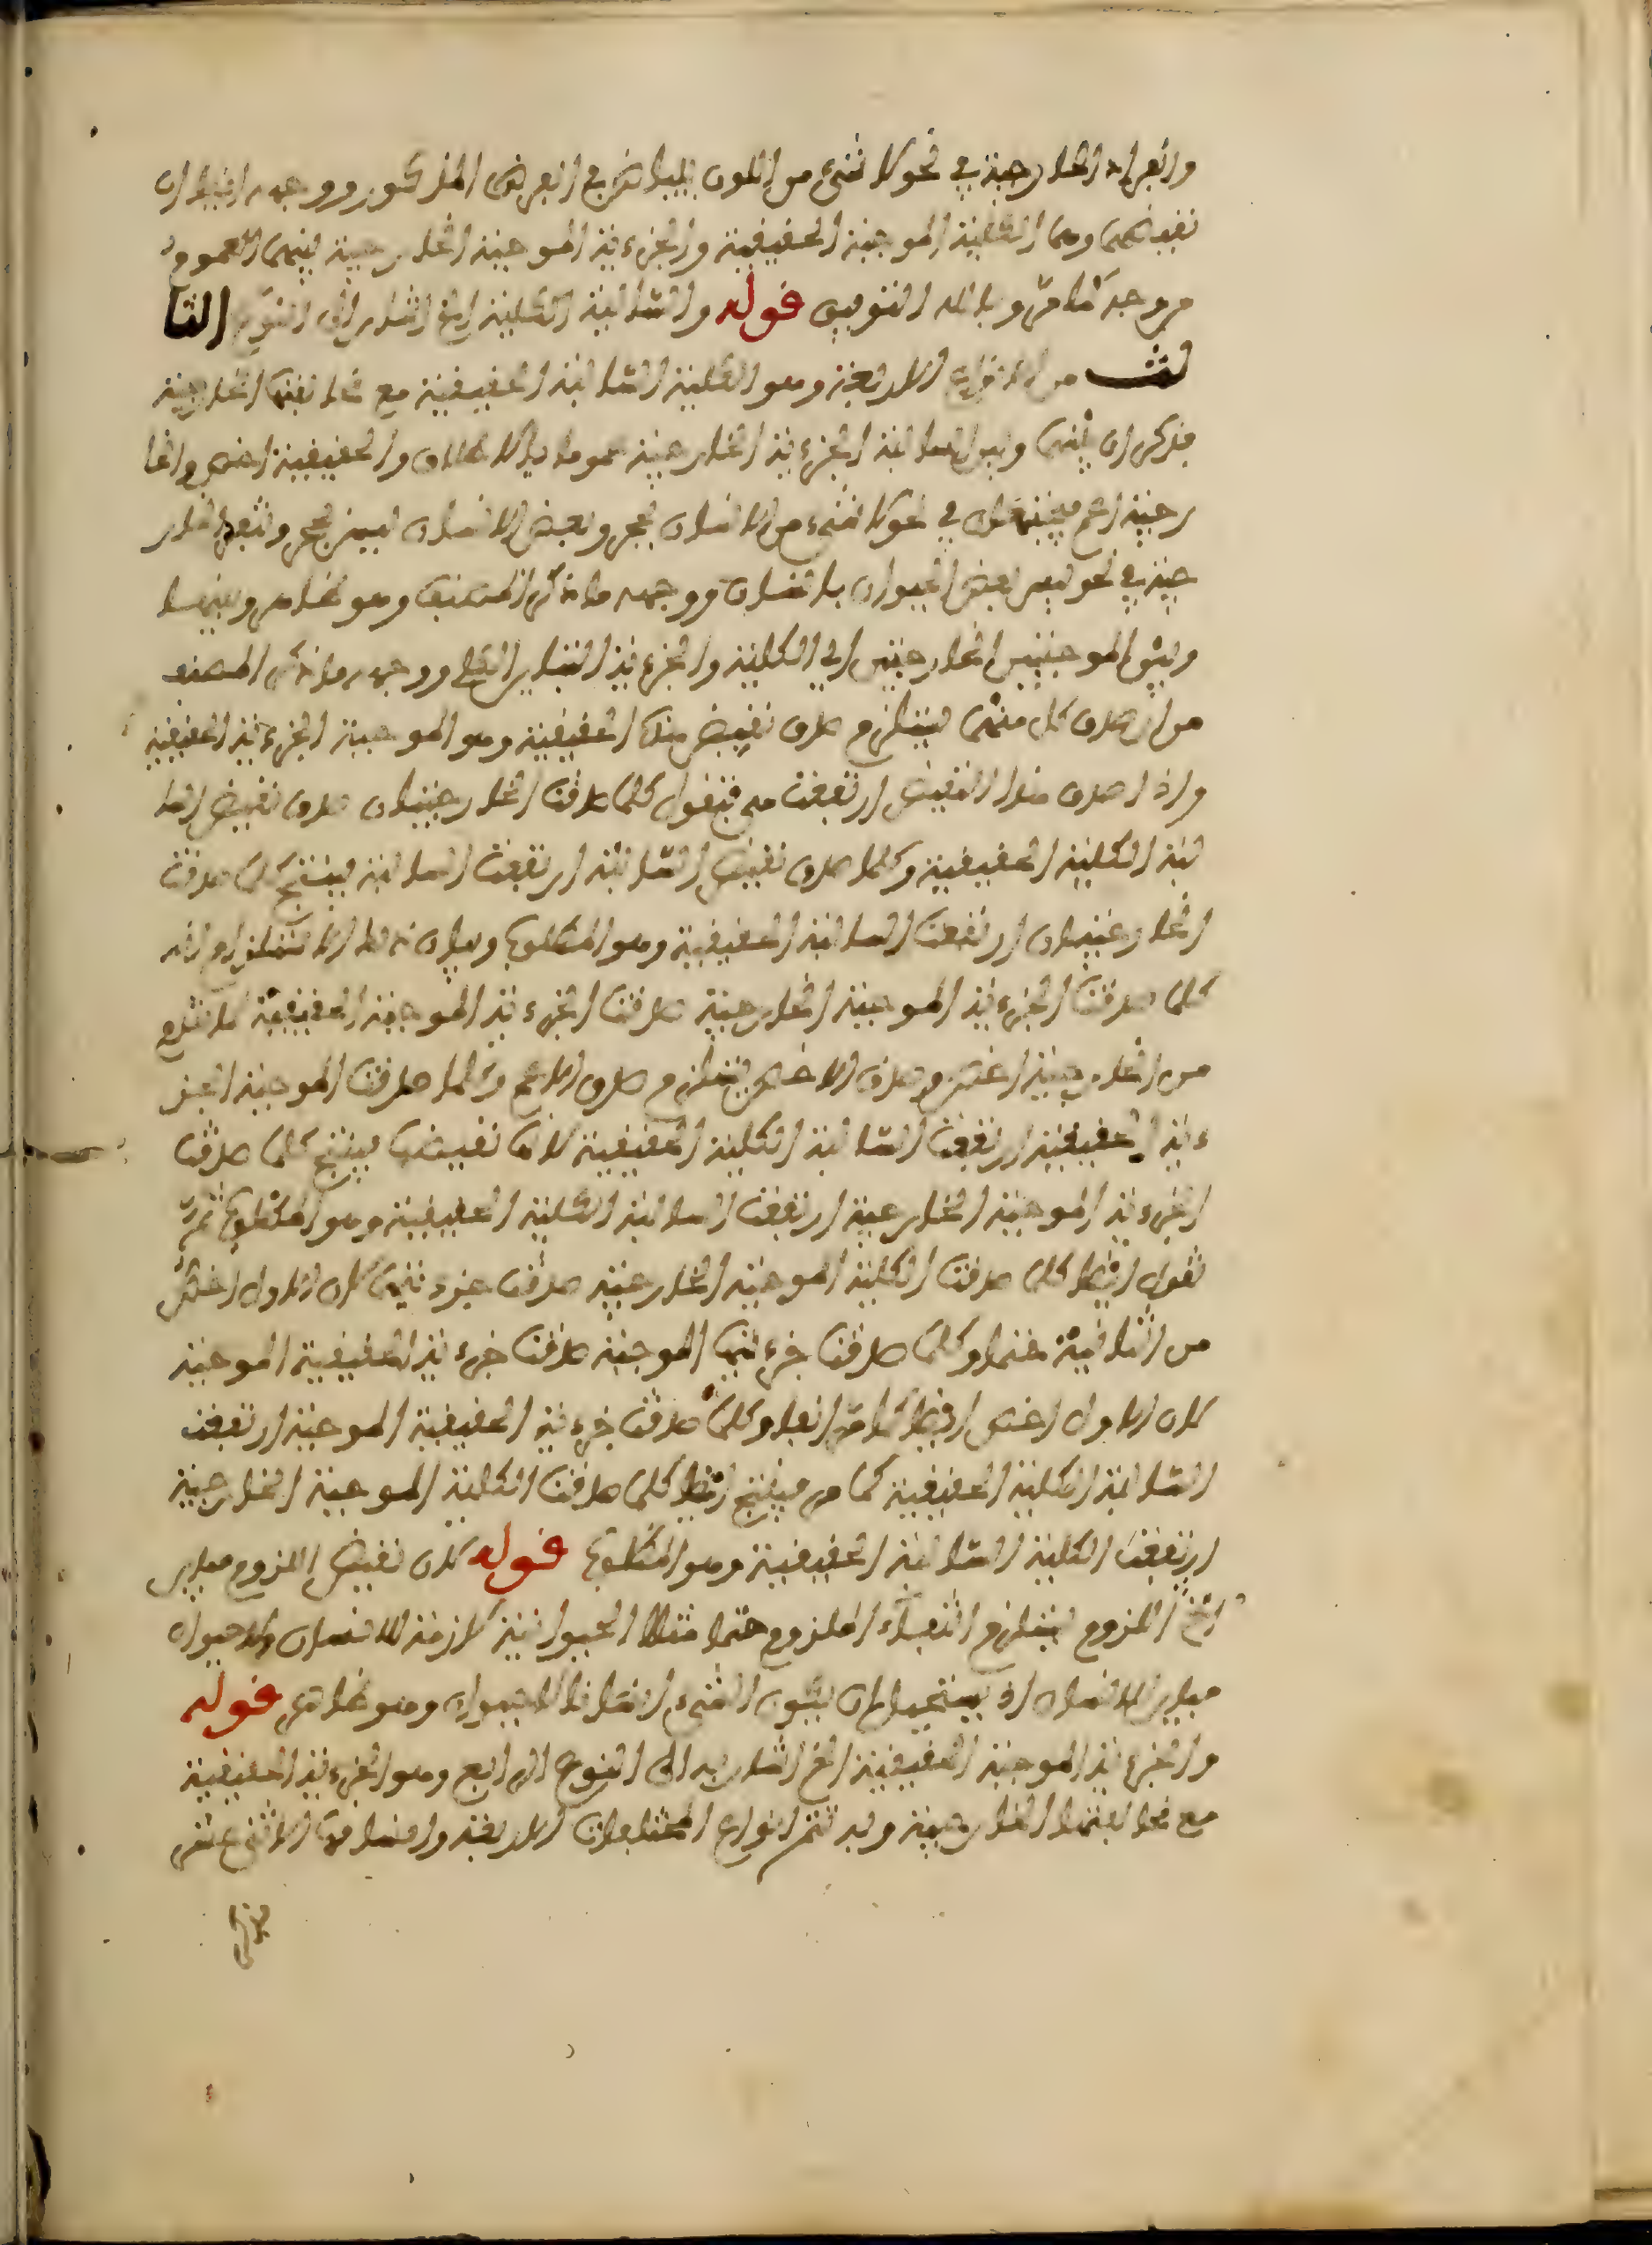 وانفراد الخارجية في نحو لا شيء من اللون ببياض في الفرض المذكور ووجهه ايضا ان
نقيضهما وهما الكلية الموجبة الحقيقية والجزءية الموجبة الخارجية بينهما العموم
من وجه كما مر وبالله التوفيق قوله والسالبة الكلية الخ اشار الى النوع الثا
لث من الانواع الاربعة وهو الكلية السالبة الحقيقية مع مخالفتها الخارجية
فذكر ان بينها وبين السالبة الجزءية الخارجية عموما بالاطلاق والحقيقية اخص والخا
رجية اعم فيجتمعان في نحو لا شيء من الانسان بحجر وبعض الانسان ليس بحجر وتنفرد الخار
جية في نحو ليس بعض الحيوان بانسان ووجهه ما ذكر المصنف وهو ظاهر وبينها
وبين الموجبتين الخارجيتين اي الكلية والجزءية التباين الكلي ووجهه ما ذكر المصنف
من ان صدق كل منهما يستلزم صدق نقيض هذه الحقيقية وهو الموجبة الجزءية الحقيقية
واذا صدق هذا النقيض ارتفعت هي فنقول كلما صدقت الخارجيتان صدق نقيض السا
لبة الكلية الحقيقية وكلما صدق نقيض السالبة ارتفعت السالبة ينتج كلما صدقت
الخارجيتان ارتفعت السالبة الحقيقية وهو المطلوب وبيان ذلك الاستلزام انه
كلما صدقت الجزءية الموجبة الخارجية صدقت الجزءية الموجبة الحقيقية لما تقدم
من الخارجية اخص وصدق الاخص يستلزم صدق الاعم وكلما صدقت الموجبة الجز
ءية الحقيقية ارتفعت السالبة الكلية الحقيقية لانها نقيضها ينتج كلما صدقت
الجزءية الموجبة الخارجية ارتفعت السالبة الكلية الحقيقية وهو المطلوب ثم
نقول ايضا كلما صدقت الكلية الموجبة الخارجية صدقت جزءيتها لان الاول اخص
من الثانية حتما وكلما صدقت جزءيتها الموجبة صدقت جزءية الحقيقية الموجبة
لان الاول اخص ايضا كما مر انفا وكلما صدقت جزءية الحقيقية الموجبة ارتفعت
السالبة الكلية الحقيقية كما مر فينتج ايضا كلما صدقت الكلية الموجبة الخارجية
ارتفعت الكلية السالبة الحقيقية وهو المطلوب قوله لان نقيض اللازم مباين
الخ اللازم يستلزم انتفاء الملزوم حتما مثلا الحيوانية لازمة للانسان ولا حيوان
مباين للانسان اذ يستحيل ان يكون الشيء انسانا لا حيوان وهو ظاهر قوله
والجزءية الموجبة الحقيقية الخ اشار به الى النوع الرابع وهو الجزءية الحقيقية
مع مخالفتها الخارجية وبه تتم انواع المختلفات الاربعة واقسامها الاثني عشر